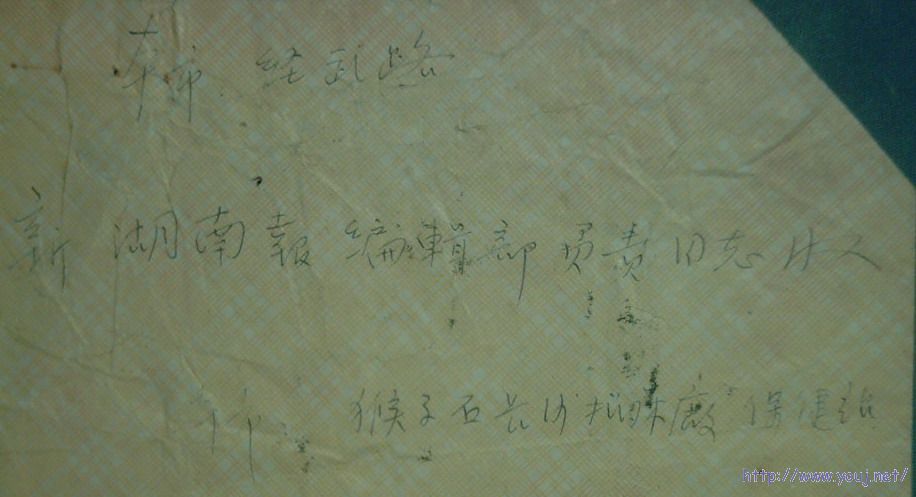 本市 经武路
新湖南報编輯部負责同志收
本市 猴子石长沙 廠保健站
http://www.youj.net/